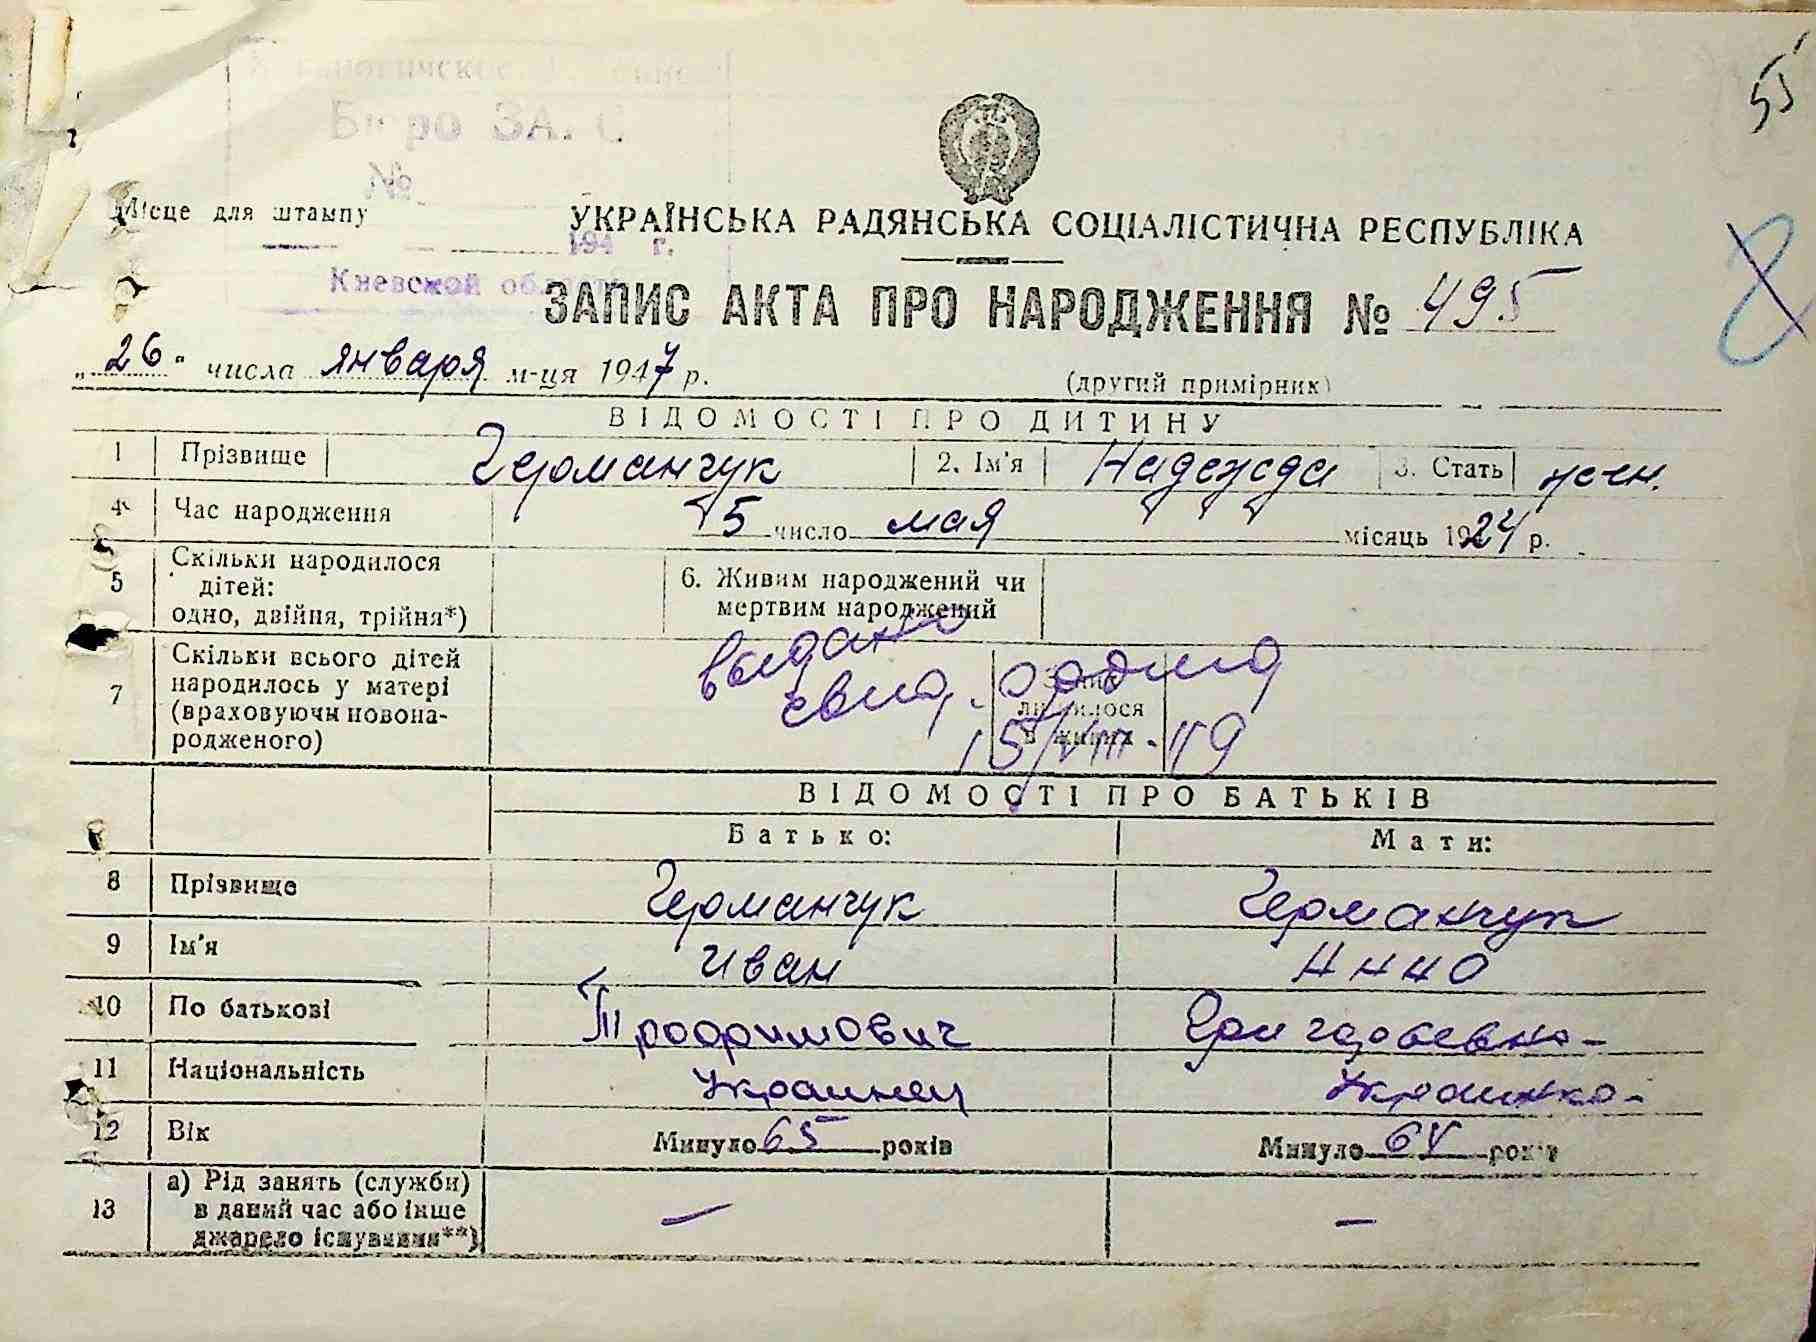 55
Бюро ЗАГС
№
Місце для штампу
УКРАЇНСЬКА РАДЯНСЬКА СОЦІАЛІСТИЧНА РЕСПУБЛІКА
194 г.
Киевской области
ЗАПИС АКТА ПРО НАРОДЖЕННЯ № 495
„26“ числа января м-ця 1947 р.
(другий примірник)
ВІДОМОСТІ ПРО ДИТИНУ
1 Прізвище Германчук 2. Ім'я Надежда 3. Стать жен.
4 Час народження 15 число мая місяць 1924 р.
5 Скільки народилося дітей: одно, двійня, трійня*) 6. Живим народжений чи мертвим народжений
7 Скільки всього дітей народилось у матері (враховуючи новонародженого) З них лишилося в живих
выдано
свид.
15/VIII-49
ВІДОМОСТІ ПРО БАТЬКІВ
Батько: Мати:
8 Прізвище Германчук Германчук
9 Ім'я Иван Анна
10 По батькові Трофимович Григорьевна
11 Національність Украинец Украинка
12 Вік Минуло 65 років Минуло 64 років
13 а) Рід занять (служби) в даний час або інше джерело існування**) — —